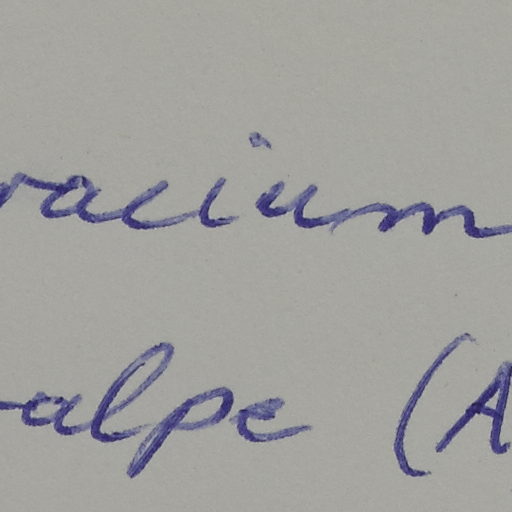 racium
-alpe (A